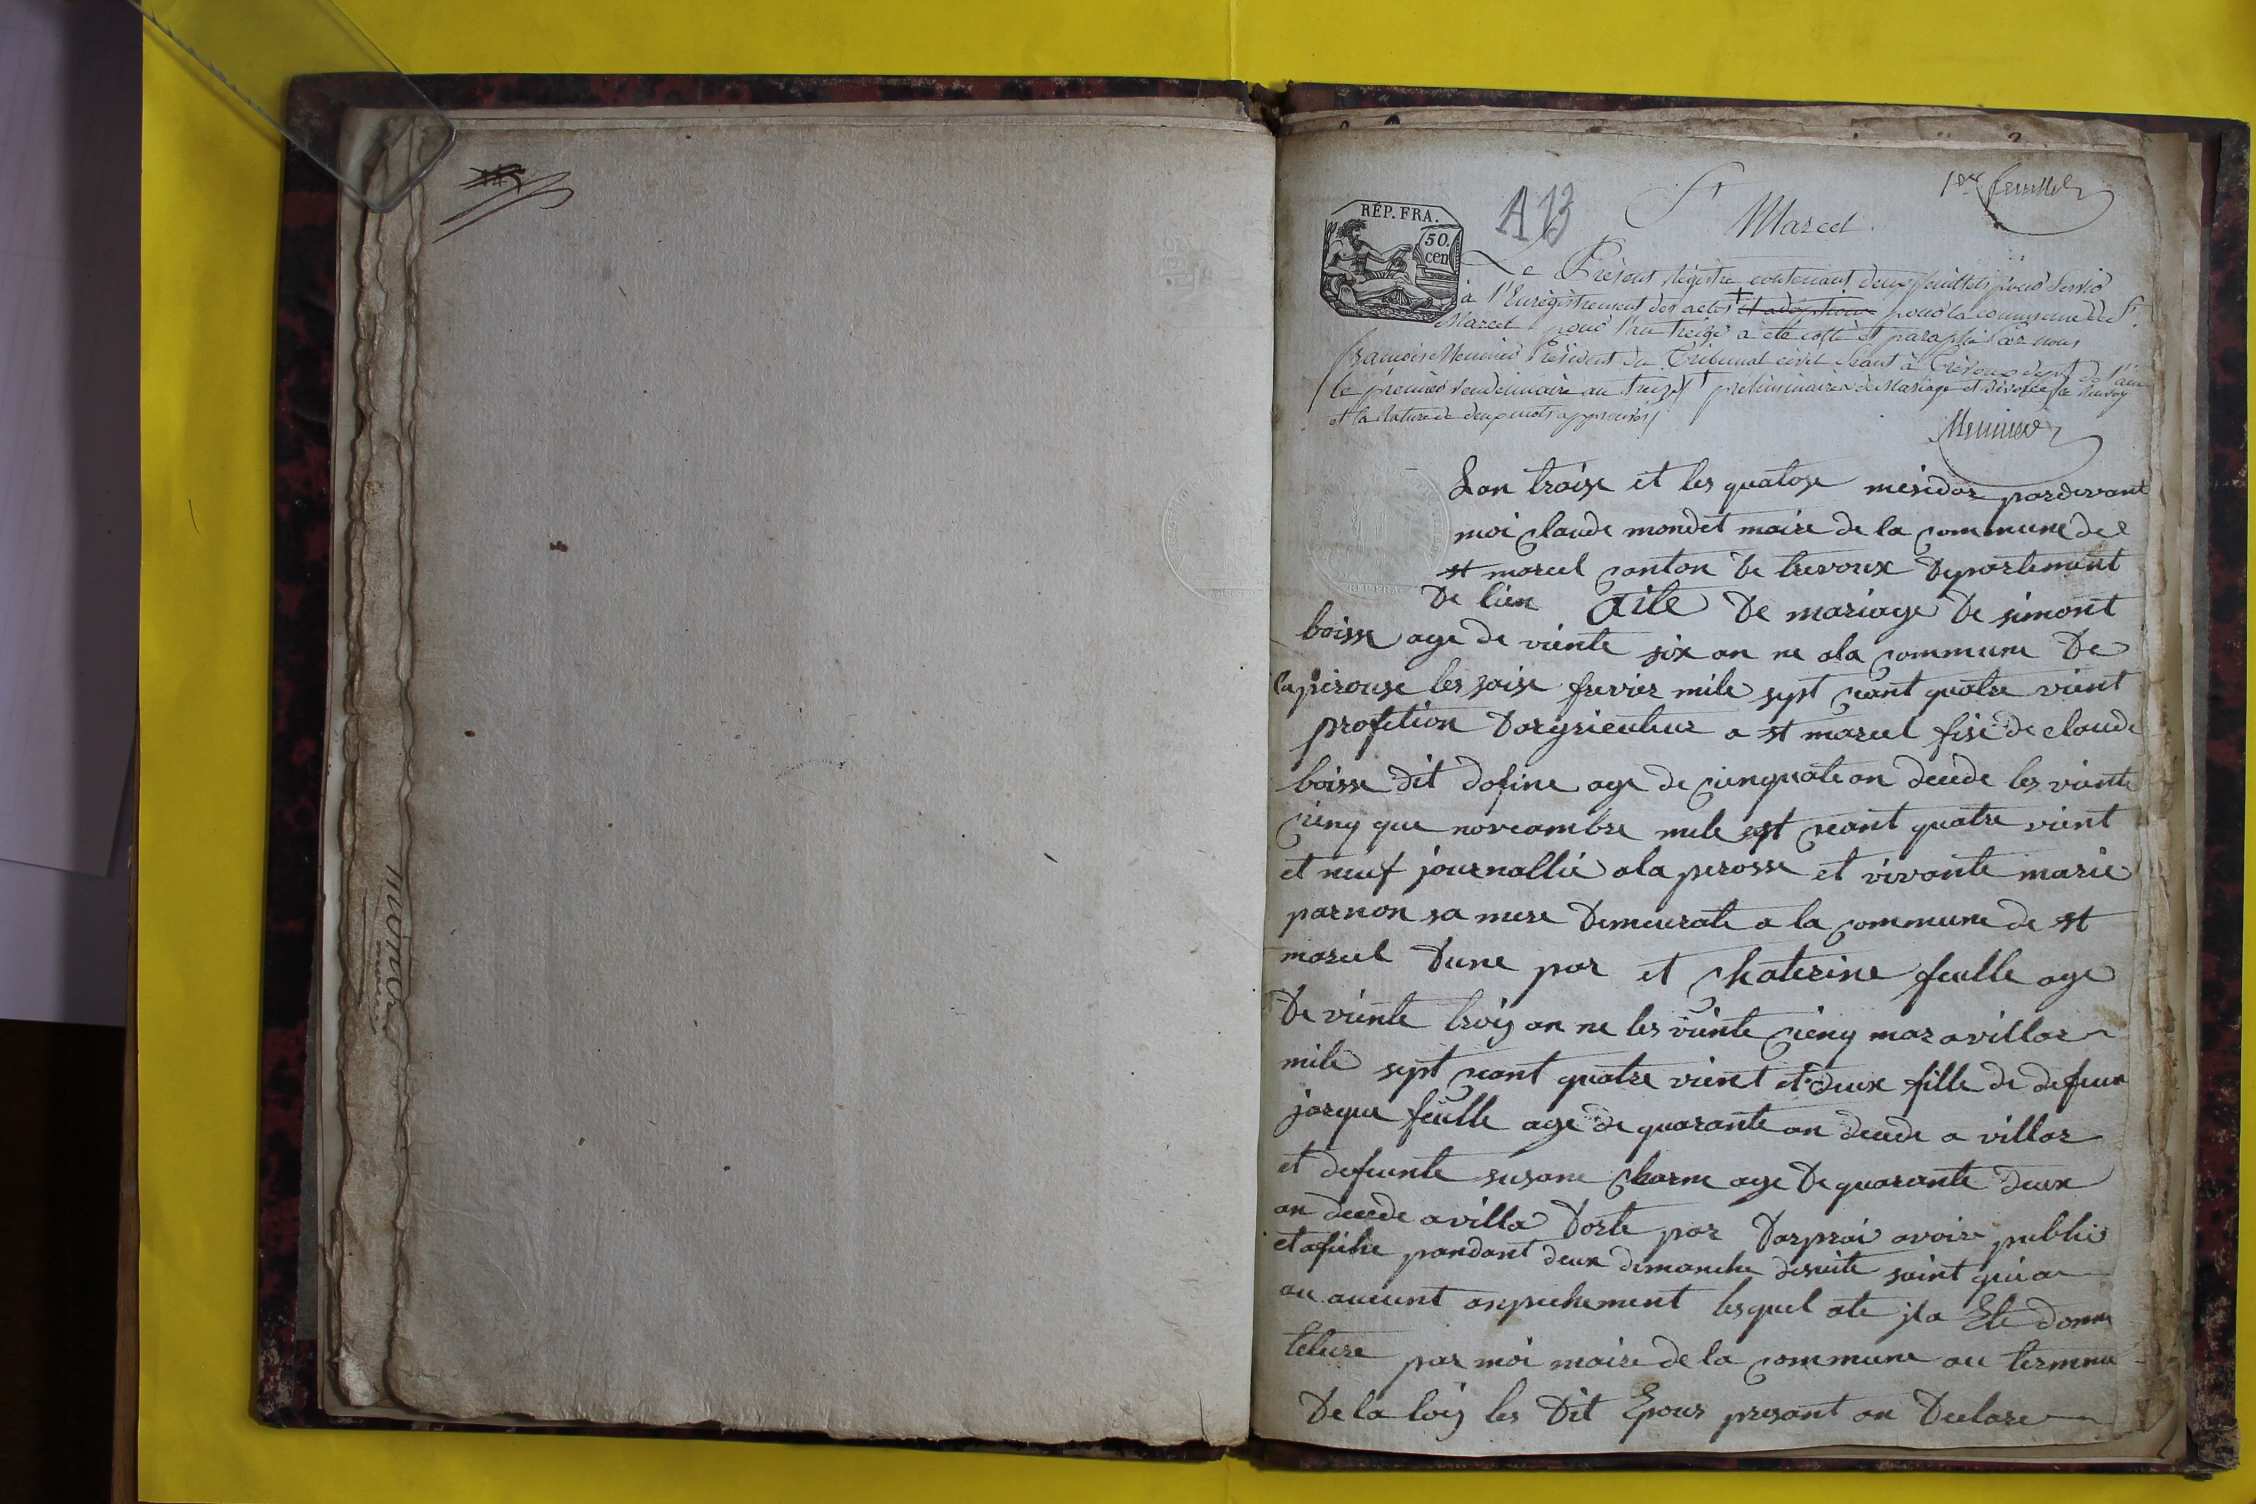 monet
1er feuillet
A 13
St
Marcel
RÉP. FRA.
50.
cen
Le Présent Régistre contenant deux feuillets pour servir
à l'Enregistrement des actes + et adoptions pour la commune de St
Marcel pour l'an treize a été cotté et paraphé Par nous
françois Meunier Président du Tribunal civil séant à Trévoux dept de l'ain
le premier vendemiaire an treize + preliminaires de Mariage et divorce le Renvoy
et la rature de deux mots approuvés
Meunier
Lan traise et les quatose mesidor pardevant
moi claude mondet maire de la commune de
st marcel canton de trevoux Departement
De lien aite De mariage De simont
boisse age de viente six an ne ala commune De
laperouse les saise fevrier mile sept ceant quatre vient
profetion Dargriculeur a st marcel fisi de claude
boisse dit dofine age de cienquate an decede les viente
cienq que noveambre mile sept ceant quatre vient
et neuf journallié ala perosse et vivante marie
parnon sa mere Demeurate a la commune de st
marcel Dune par et chaterine feulle age
De viente trois an ne les viente cienq mar a villar
mile sept ceant quatre vient et deux fille de defeun
jacque feulle age de quarante an decede a villar
et defeunte susane charne age De quarante deux
an decede a villa Dotte par Darprai avoire publié
et afiche pandant deux dimanche desuite saint quia
au aucunt anpechement lesquel ate jla Ete donne
lelure par moi maire de la commune au termme
De la loij les Dit Epoux presant an Declare